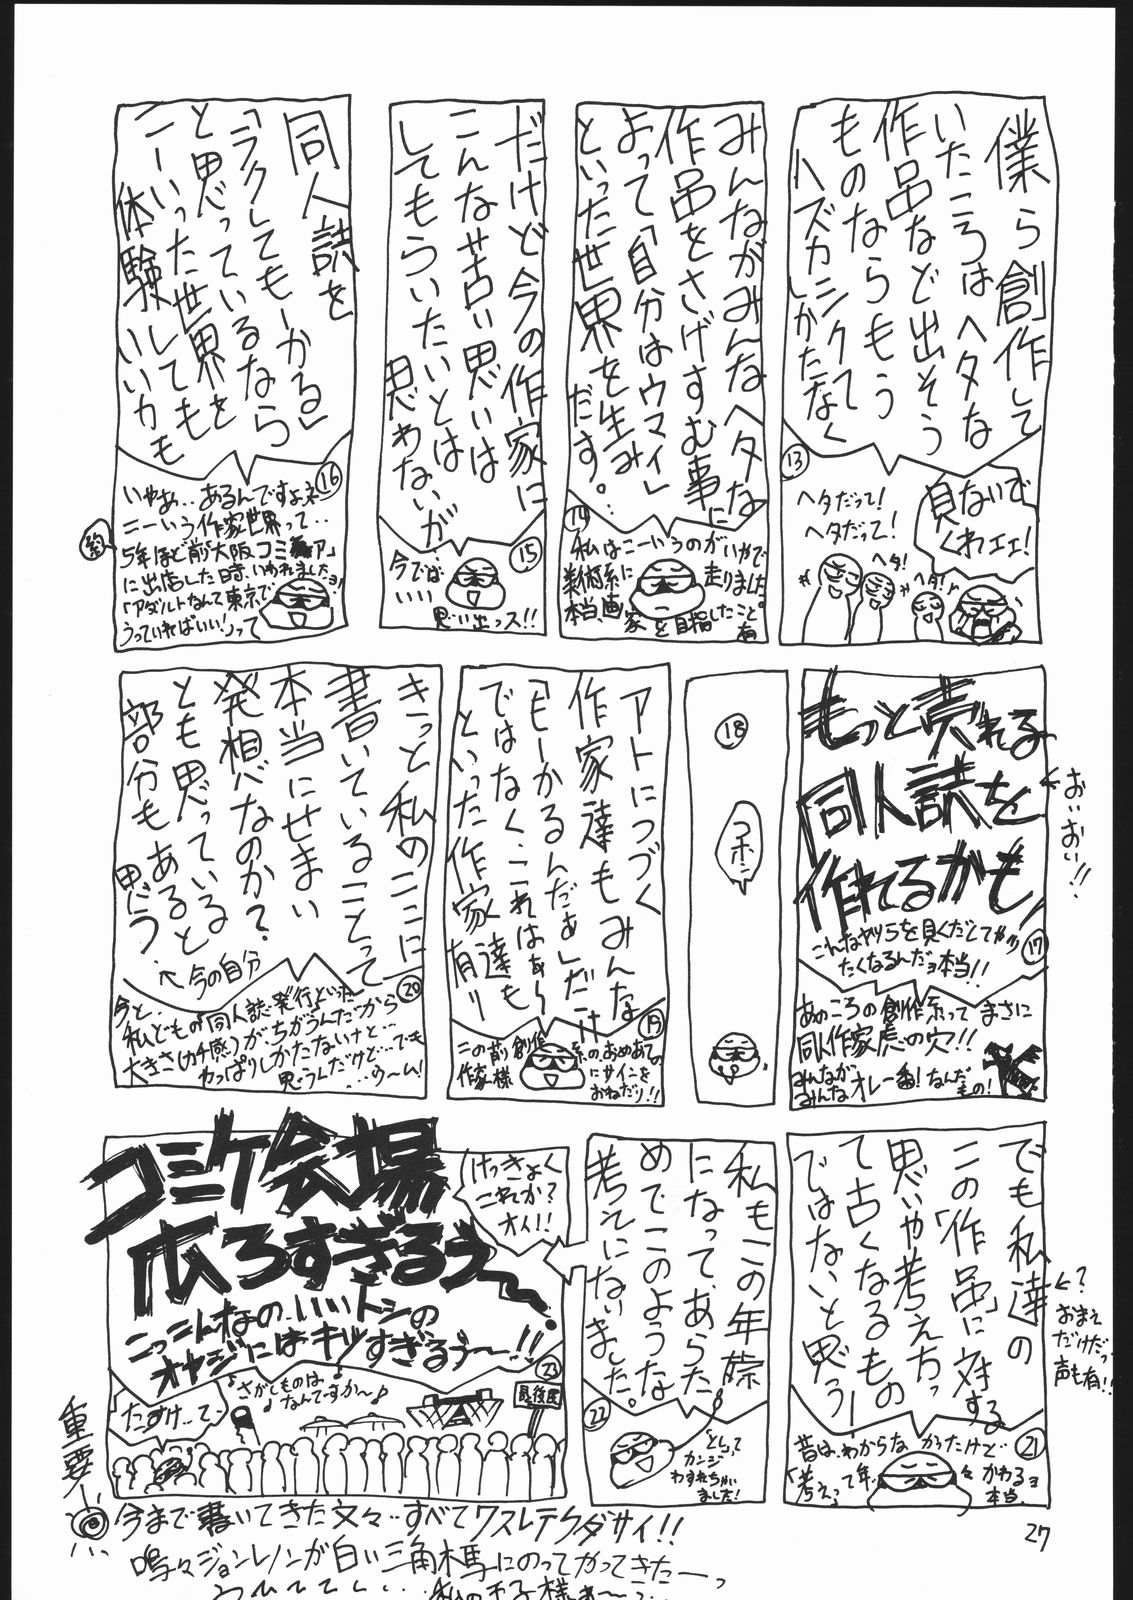 僕ら創作して
いたころはヘタな
作品など出そう
ものならもう
ハズカシクて
しかたなく
⑬
見ないで
くれェェ!
ヘタだって!
ヘタだって!
ヘタ!
ヘタ!
みんながみんなヘタな
作品をさげすむ事に
よって「自分はウマイ」
といった世界を生み
だす。
⑭
私はこーいうのがいやで
美術系に走りました
本当、画家を目指したこと有
だけど今の作家に
こんな苦い思いは
してもらいたいとは
思わないが
⑮
今では‥
いい
思い出っス!!
同人誌を
「ラクしてもーかる」
と思っているなら
こーいった世界を
体験しても
いいカモ
⑯
いやぁ‥あるんですよネ
こーいう作家世界って‥
約
5年ほど前「大阪コミケア」
に出店した時、いわれましたョ!
「アダルトなんて東京で
うっていればいい!」って
もっと売れる
同人誌を
作れるかも!
おいおい!!
⑰
こんなヤツらを見くだしてやり
たくなるんだョ本当!!
あのころの創作系ってまさに
同人作家虎の穴!!
みんなが
みんなオレ一番!なんだ
もの!
⑱
コホン
アトにつづく
作家達もみんな
「もーかるんだぁ」だけ
ではなく、これはぁ〜
といった作家達も
有り
⑲
この前創作系の、おめあての
作家様にサインを
おねだり!!
きっと私のここに
書いていることって
本当にせまい
発想なのか?
とも思っていると
部分もあると
思う
←今の自分
⑳
今と、
私どもの「同人誌発行」といった
大きさ(カチ感)が、ちがうんだから
やっぱりしかたないけど…
思うんだけど…でも
…ウーム!
でも私達の
この「作品」に対する
思いや考え方って
古くなるもの
ではないと思う!
←?
おまえ
だけだっ
声も有!!
㉑
昔は、わからなかったけど
「考えって年々かわるョ
本当
私もこの年齢
になって、あらた
めてこのような
考えにないました。
㉒
「としって
カンジ
わすれちゃい
ました!
けっきょく
これか?
オイ!!
コミケ会場
広ろすぎるぅ〜
こっこんなの‥いいトシの
オヤジにはキツすぎるぅ〜!!
㉓
♪さがしものは
なんですか〜♪
たすけ…て〜
最後尾
重要
今まで書いてきた文々‥すべてワスレテクダサイ!!
鳴々ジョンレノンが白い三角木馬にのってやってきたーっ
27